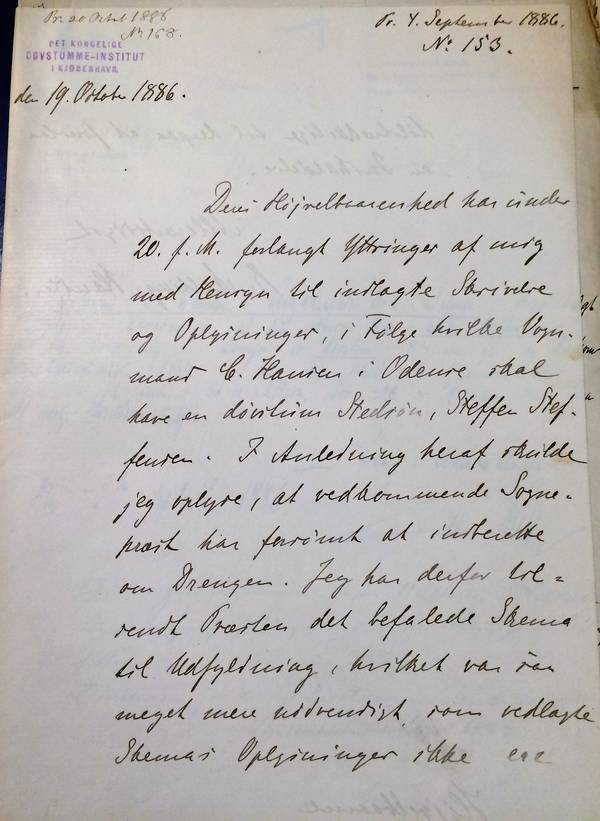 Pr. 20 Octob 1886
No 168.
Pr. 4. September 1886.
No 153.
DET KONGELIGE
DØVSTUMME-INSTITUT
I KJØBENHAVN.
den 19. October 1886.
Deres Højvelbaarenhed har under
20. f. M. forlangt Yttringer af mig
med Hensyn til indlagte Skrivelse
og Oplysninger, i Følge hvilke Vogn-
mand C. Hansen i Odense skal
have en døvstum Stedsøn, Steffen Stef-
fensen. I Anledning heraf skulde
jeg oplyse, at vedkommende Sogne-
præst har forsømt at indberette
om Drengen. Jeg har derfor til-
sendt Præsten det befalede Skema
til Udfyldning, hvilket var saa
meget mere nødvendigt som vedlagte
Skemas Oplysninger ikke ere